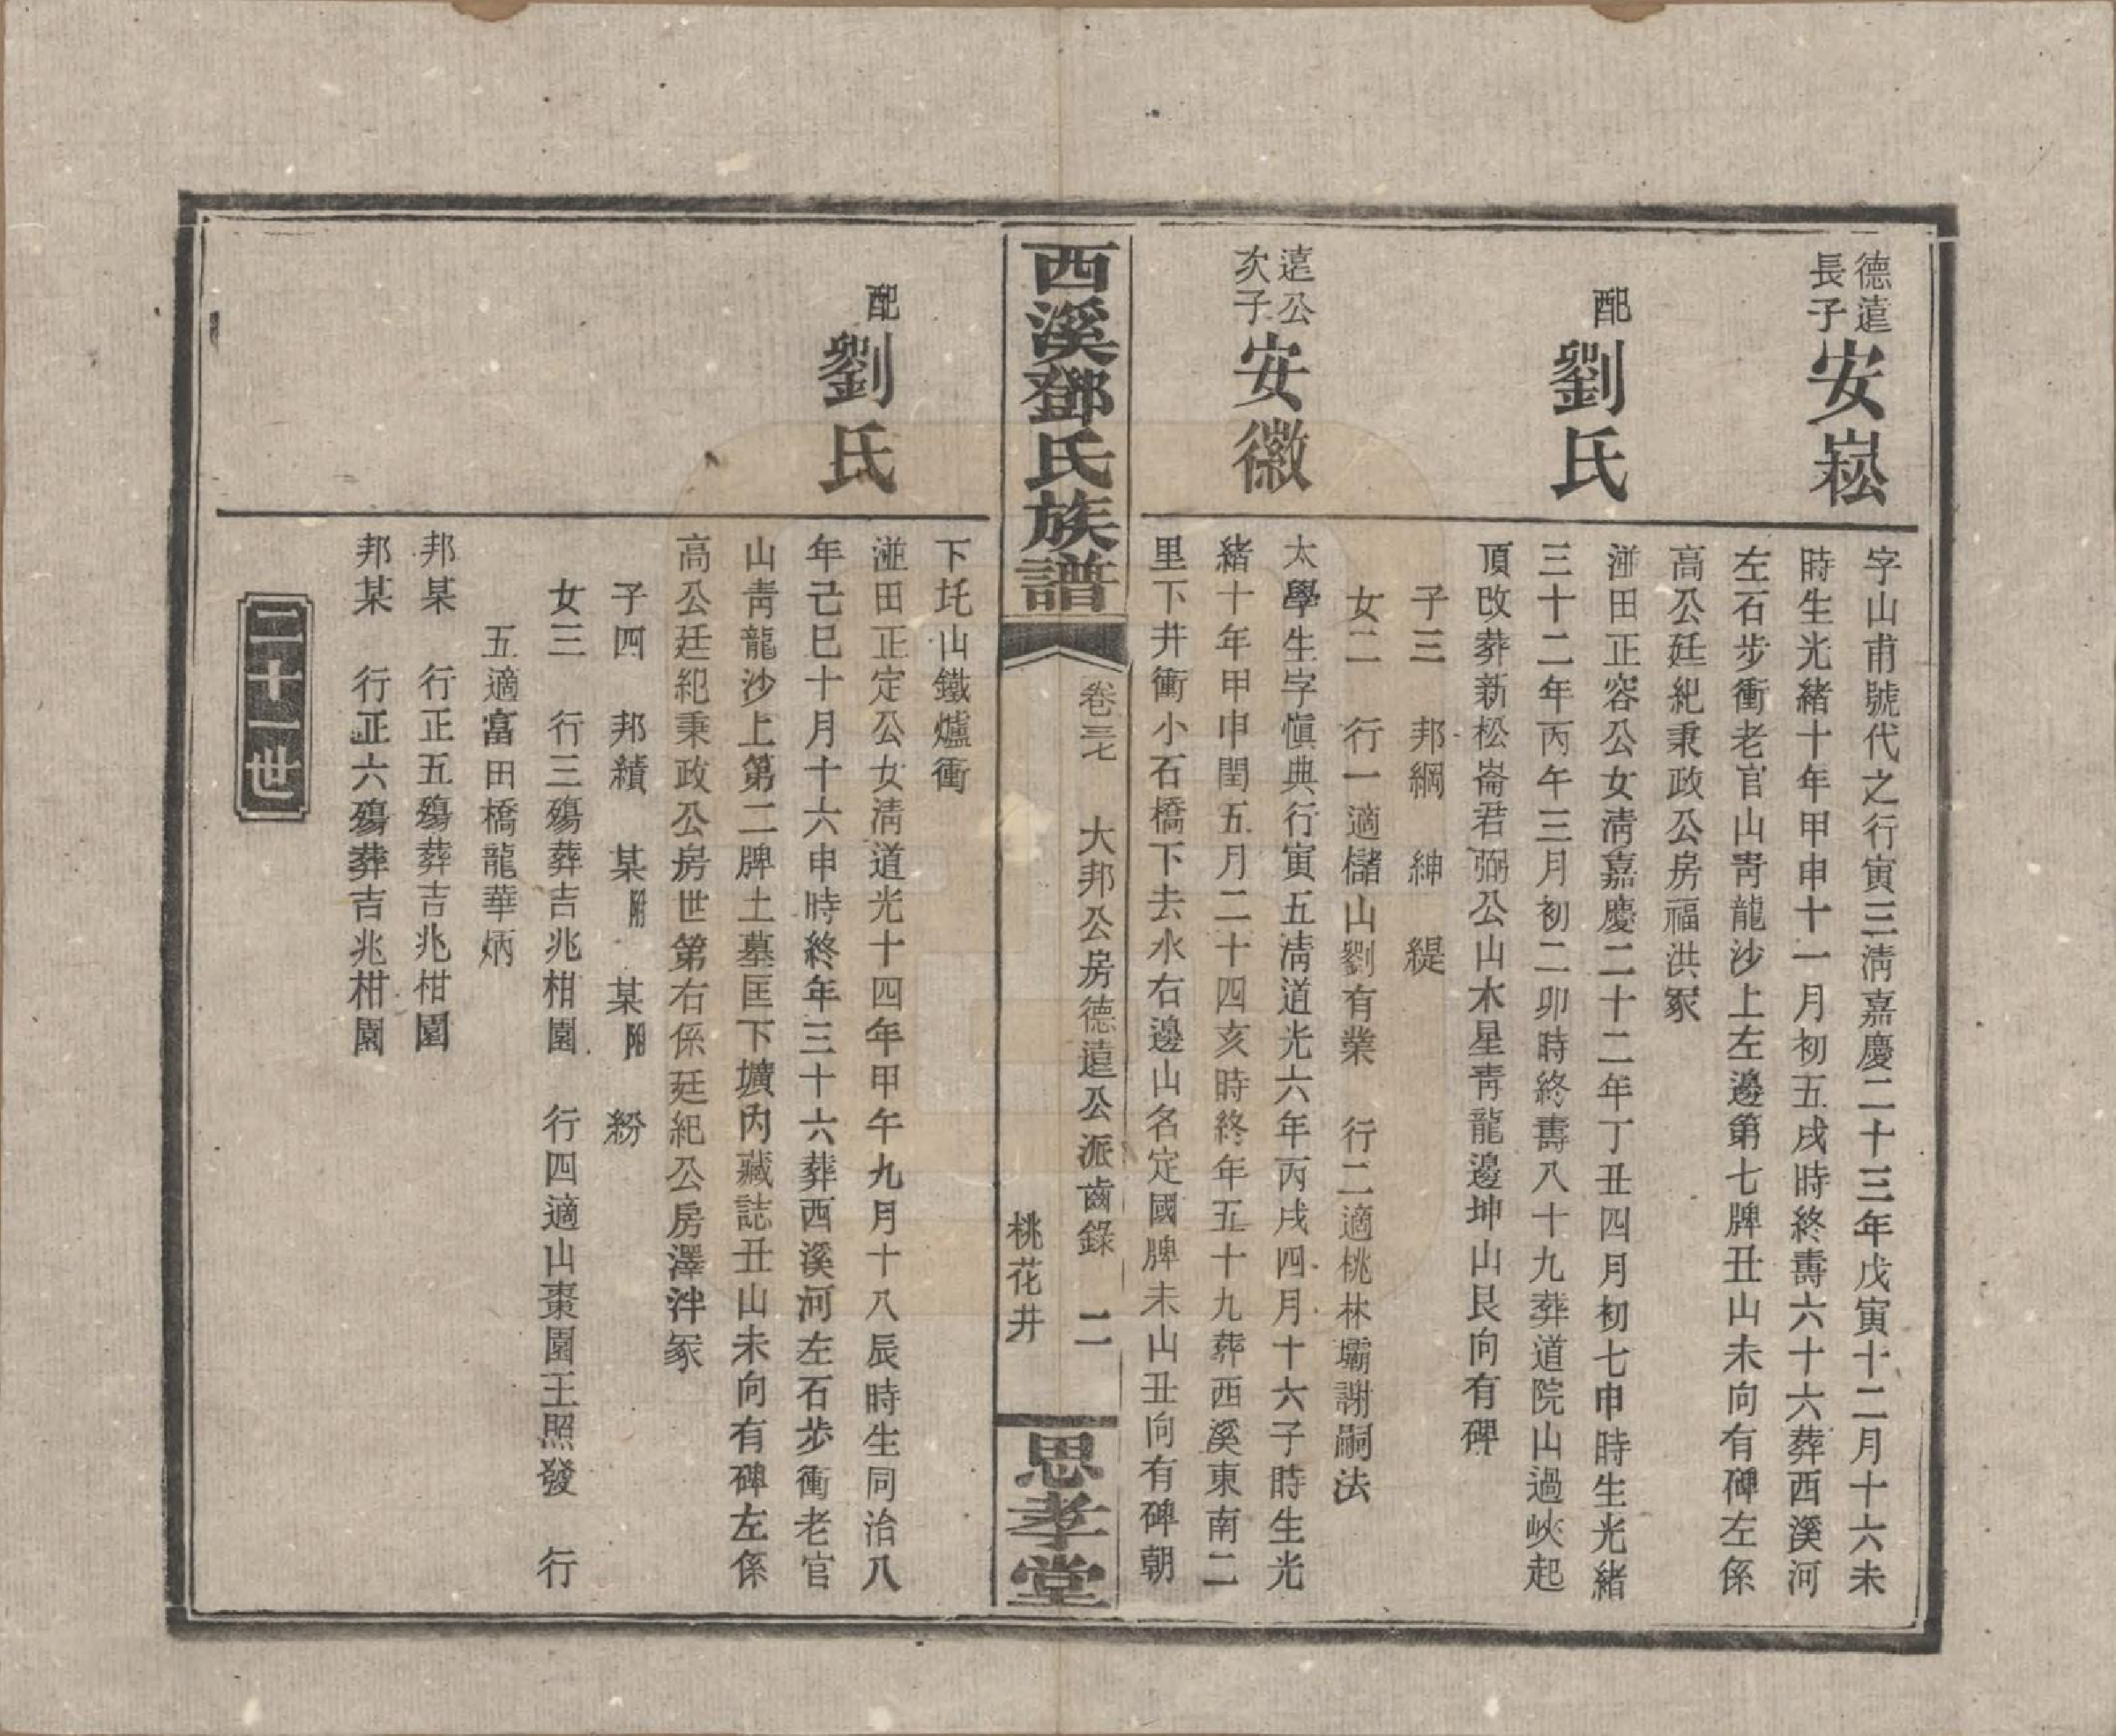 德遠
長子
安崧
字山甫號代之行寅三淸嘉慶二十三年戊寅十二月十六未
時生光緒十年甲申十一月初五戌時終壽六十六葬西溪河
左石步衝老官山靑龍沙上左邊第七牌丑山未向有碑左係
高公廷紀秉政公房福洪冢
配
劉氏
湴田正容公女淸嘉慶二十二年丁丑四月初七申時生光緒
三十二年丙午三月初二卯時終壽八十九葬道院山過峽起
頂改葬新松崙君弼公山木星靑龍邊坤山艮向有碑
子三 邦綱 紳 緹
女二 行一適儲山劉有業 行二適桃林壩謝嗣法
遠公
次子
安徽
太學生字愼典行寅五淸道光六年丙戌四月十六子時生光
緒十年甲申閏五月二十四亥時終年五十九葬西溪東南二
里下井衝小石橋下去水右邊山名定國牌未山丑向有碑朝
西溪鄧氏族譜
卷三七 大邦公房德遠公派齒錄 二
桃花井
思孝堂
下圫山鐵爐衝
配
劉氏
湴田正定公女淸道光十四年甲午九月十八辰時生同治八
年己巳十月十六申時終年三十六葬西溪河左石步衝老官
山靑龍沙上第二牌土墓匡下壙內藏誌丑山未向有碑左係
高公廷紀秉政公房世第右係廷紀公房澤泮冢
子四 邦績 某附 某附 紛
女三 行三殤葬吉兆柑園 行四適山棗園王照發 行
五適富田橋龍華炳
邦某 行正五殤葬吉兆柑園
邦某 行正六殤葬吉兆柑園
二十一世